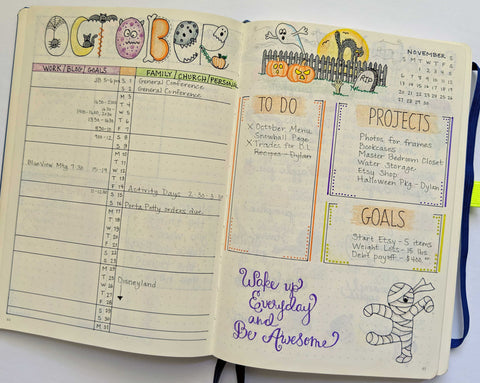 OCTOBER
WORK/BLOG/GOALS
FAMILY/CHURCH/PERSONAL
S 1 General Conference
S 2 General Conference
M 3
T 4
W 5
T 6
F 7
S 8
S 9
M 10
T 11
W 12
BlueView Mtg 7:30
T 13
F 14 Activity Days 2:30-3:30
S 15
S 16 Porta Potty orders due
M 17
Disneyland
S 30
M 31
RIP
NOVEMBER
S M T W T F S
1 2 3 4 5
6 7 8 9 10 11 12
13 14 15 16 17 18 19
20 21 22 23 24 25 26
27 28 29 30
TO DO
X October Menu
Snowball Page
X Trades for B.L.
Recipes - Dylan
PROJECTS
Photos for frames
Bookcases
Master Bedroom Closet
Water Storage
Etsy Shop
Halloween Pkg - Dylan
GOALS
Start Etsy - 5 items
Weight Loss - 15 lbs
Debt payoff - $400.00
Wake up
Everyday
and
Be Awesome